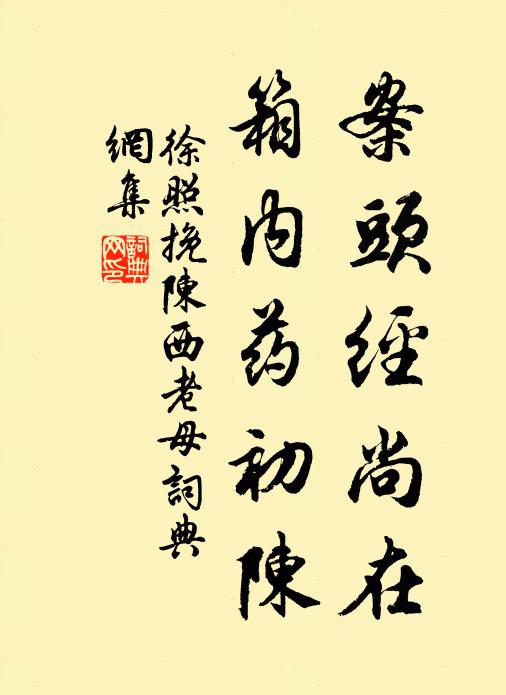 案頭經尚在
箱内药初陳
徐照挽陳西老母詞典
網集
詞典網印